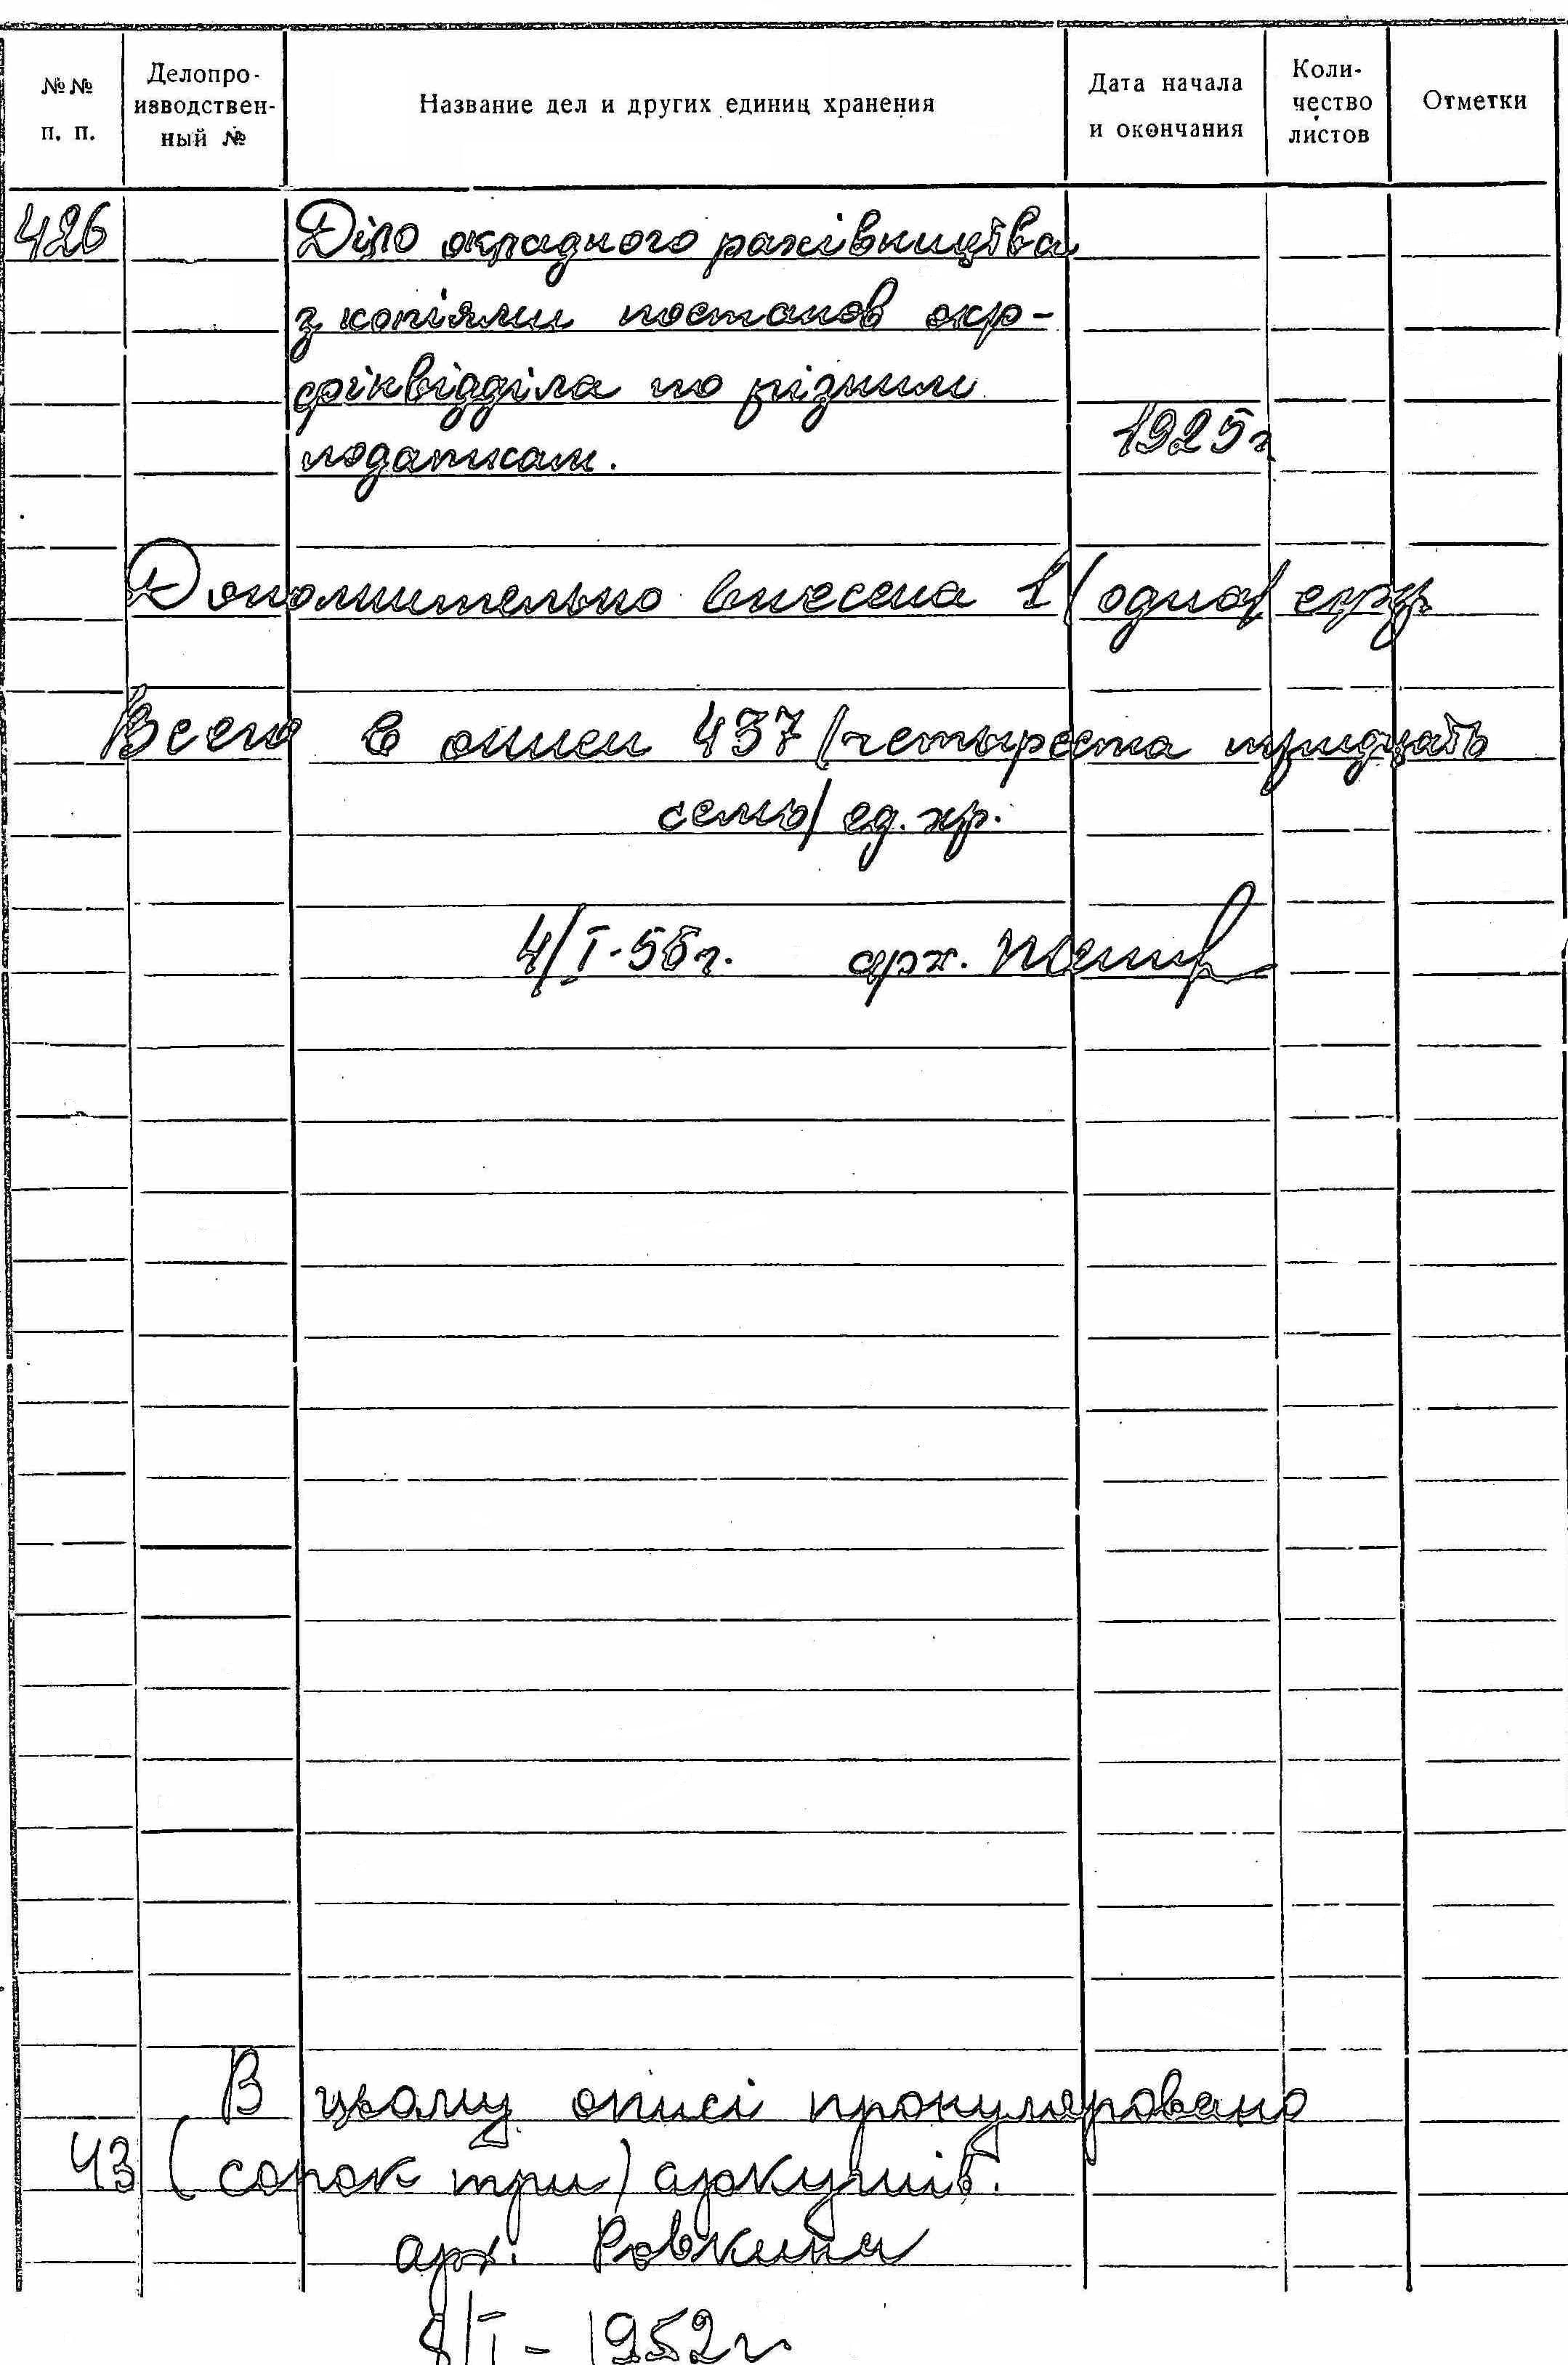 №№ п. п.
Делопро-
изводствен-
ный №
Название дел и других единиц хранения
Дата начала
и окончания
Коли-
чество
листов
Отметки
426 Діло окладного рахівництва
з копіями постанов окр-
фінвідділа по різним
податкам. 1925г
Дополнительно внесена 1/одна/
Всего в описи 437/четыреста тридцать
семь/ ед. хр.
4/I-56г. арх.
В цьому описі пронумеровано
43 (сорок три) аркушів.
арх.
8/I-1952г.